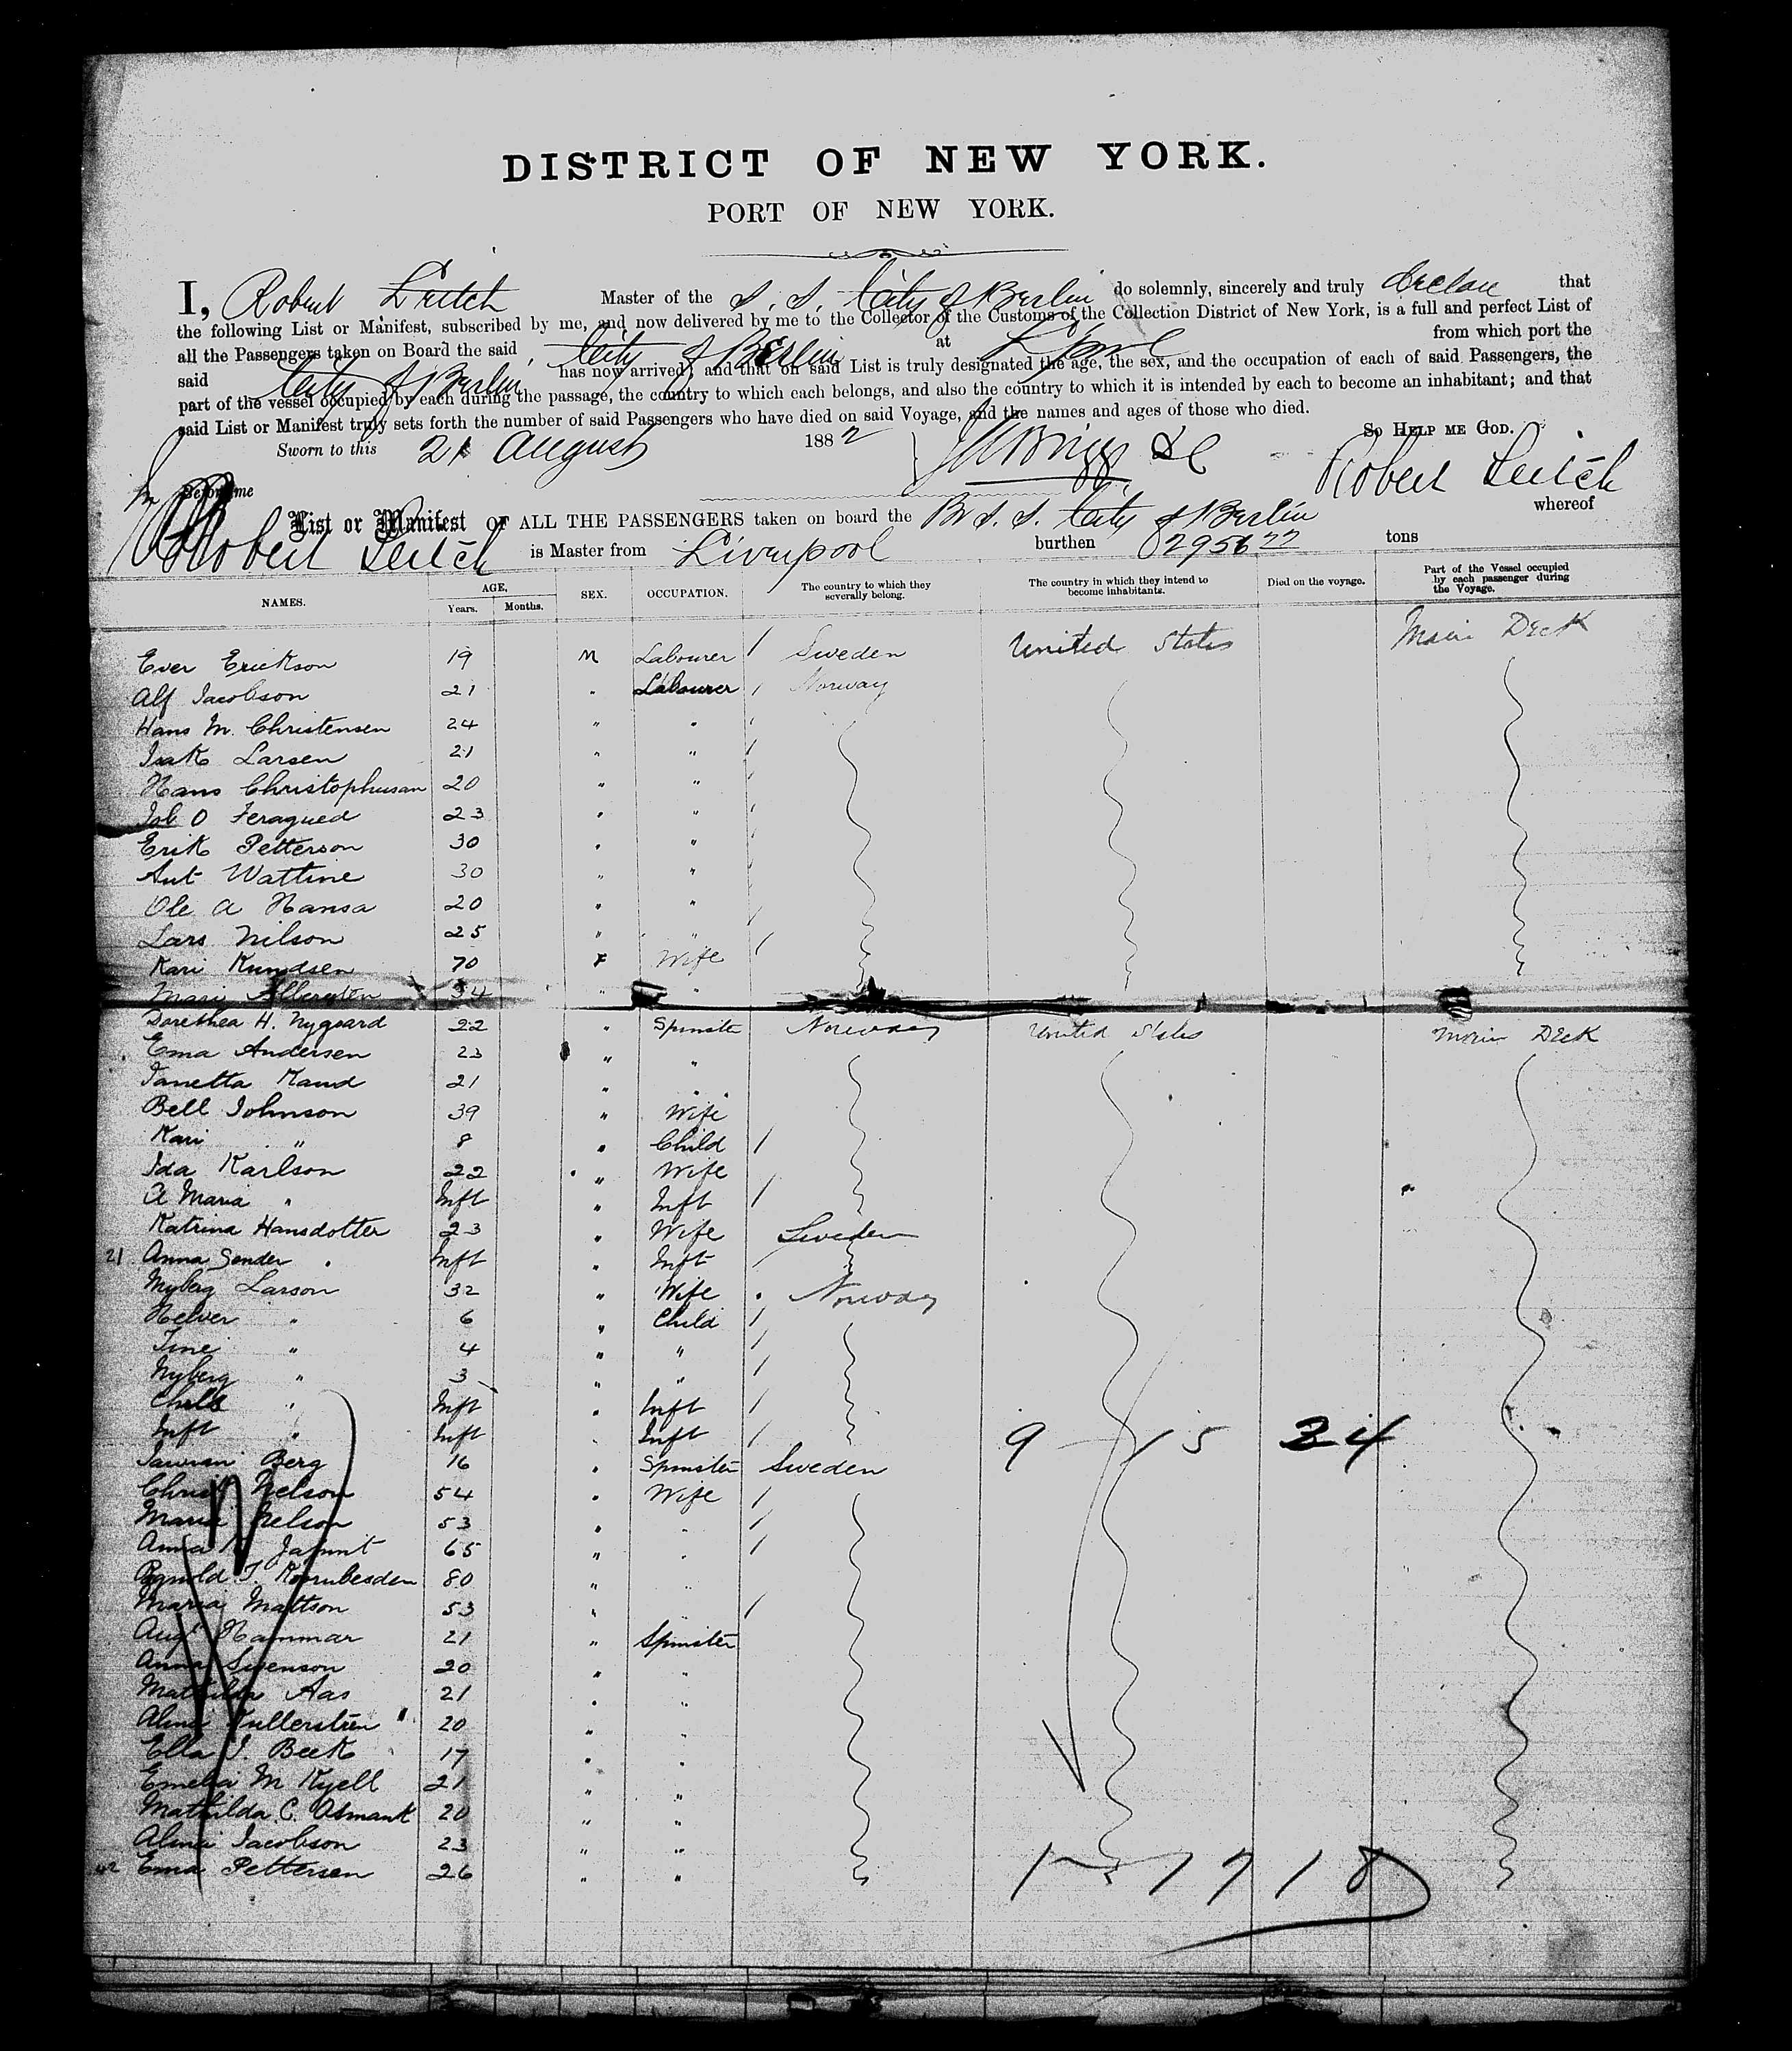 DISTRICT OF NEW YORK.
PORT OF NEW YORK.
I, Robert Leitch Master of the S. S. City of Berlin do solemnly, sincerely and truly declare that
the following List or Manifest, subscribed by me, and now delivered by me to the Collector of the Customs of the Collection District of New York, is a full and perfect List of
all the Passengers taken on Board the said City of Berlin at L'pool from which port the
said City of Berlin has now arrived; and that on said List is truly designated the age, the sex, and the occupation of each of said Passengers, the
part of the vessel occupied by each during the passage, the country to which each belongs, and also the country to which it is intended by each to become an inhabitant; and that
said List or Manifest truly sets forth the number of said Passengers who have died on said Voyage, and the names and ages of those who died.
So HELP ME GOD.
Sworn to this 21 August 1882
Robert Leitch
Before me
List or Manifest OF ALL THE PASSENGERS taken on board the Br S. S. City of Berlin whereof
Robert Leitch is Master from Liverpool burthen 2956 22 tons
NAMES. AGE, Years. Months. SEX. OCCUPATION. The country to which they severally belong. The country in which they intend to become inhabitants. Died on the voyage. Part of the Vessel occupied by each passenger during the Voyage.
Ever Erickson 19 M Labourer / Sweden United States Main Deck
Alf Jacobson 21 " Labourer / Norway
Hans M. Christensen 24 " "
Isak Larsen 21 " " /
Hans Christophersan 20 " "
O Feragued 23 " "
Erik Petterson 30 " "
Ant Wattine 30 " "
Ole A Hansa 20 " "
Lars Nilson 25 " " /
Kari Knudsen 70 F Wife
Mari 34 " "
Dorethea H. Nygaard 22 " Spinster Norway United States Main Deck
Ema Andersen 23 " "
Janetta Kand 21 " "
Bell Johnson 39 " Wife
Kari " 8 " Child /
Ida Karlson 22 " Wife
A Maria " Inft " Inft /
Katrina Hansdotter 23 " Wife Sweden
21 Anna Sender " Inft " Inft /
Nyberg Larson 32 " Wife Norway
Helver " 6 " Child /
Tine " 4 " " /
Nyberg " 3 " " /
Child " Inft " Inft /
Inft " Inft " Inft / 9 — 15 24
Berg 16 " Spinster Sweden
Christ Nelson 54 " Wife /
Maria Nelson 53 " " /
Anna 65 " " /
80 " "
Maria Mattson 53 " " /
Augt Hammar 21 " Spinster
Anna Swenson 20 " "
Mathilda Aas 21 " "
Alma Fullerstren 20 " "
Ella J. Beck 17 " "
Emelia M Kyell 21 " "
Mathilda C. Osmank 20 " "
Alma Jacobson 23 " "
42 Ema Pettersen 26 " "